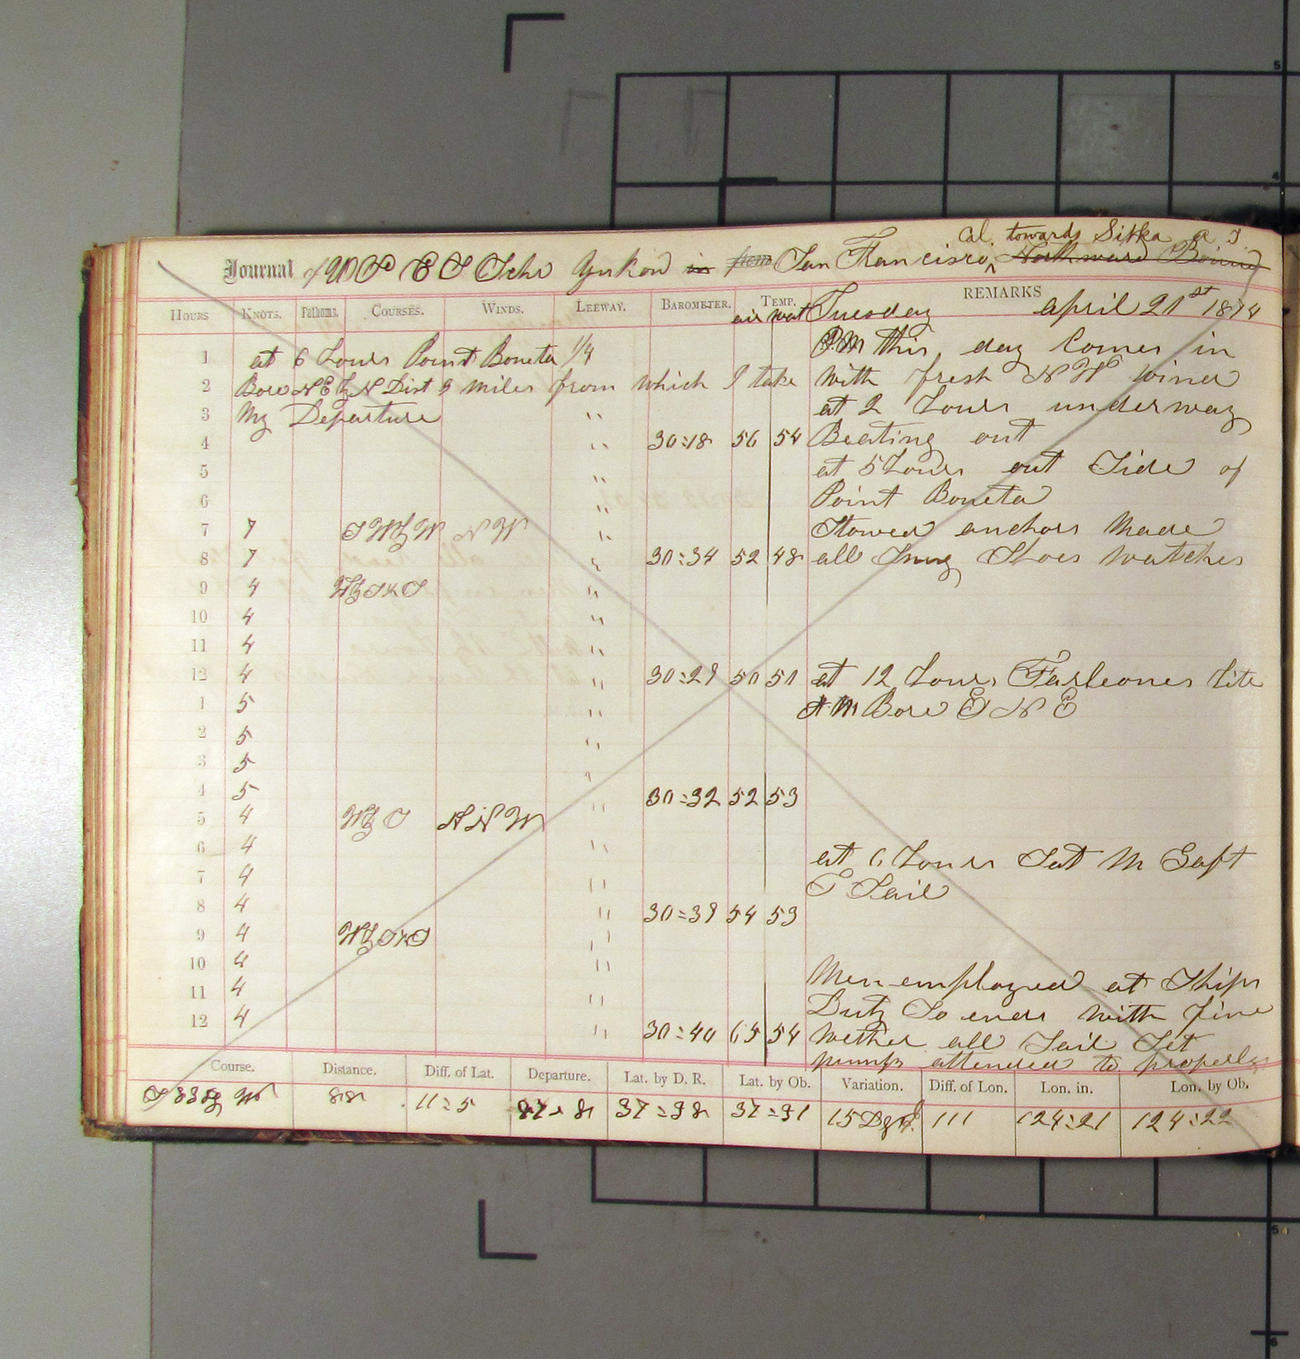 Cal. towards Sitka A. T.
Journal of U S C S Schr Yukon in from San Francisco Northward Bound
HOURS KNOTS. Fathoms. COURSES. WINDS. LEEWAY. BAROMETER. TEMP. REMARKS
air wat Tuesday April 21st 1874
1 at 6 Hours Point Boneta 1/4 PM this day Comes in
2 Bore N E by N Dist 9 miles from which I take with fresh N W wind
3 My Departure " at 2 Hours underway
4 " 30=18 56 54 Beating out
5 " at 5 Hours out Side of
6 " Point Boneta
7 7 S W by W N W " Stowed anchors Made
8 7 " 30=34 52 48 all Snug Stoes watches
9 4 W by S 1/2 S "
10 4 "
11 4 "
12 4 " 30=29 50 50 at 12 Hours Farleones lite
1 5 " A M Bore E N E
2 5 "
3 5 "
4 5 " 30=32 52 53
5 4 W by S N N W "
6 4 " at 6 Hours Set M Gaft
7 4 " T Sail
8 4 " 30=39 54 53
9 4 W by S 1/2 S "
10 4 " Men employed at Ships
11 4 " Duty So ends with fine
12 4 " 30=40 65 54 wether all Sail Set
pumps attended to properly
Course. Distance. Diff. of Lat. Departure. Lat. by D. R. Lat. by Ob. Variation. Diff. of Lon. Lon. in. Lon. by Ob.
S 83 W 88 11=5 87=8 37=38 37=31 15 Dg 111 124=21 124=22